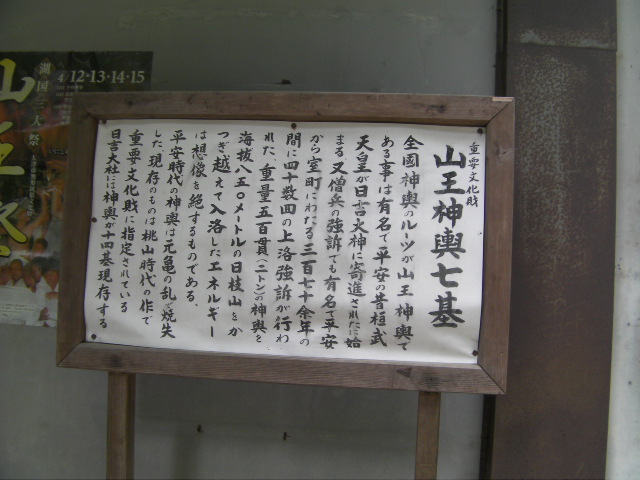 重要文化財
山王神輿七基
全國神輿のルーツが山王神輿で
ある事は有名で平安の昔桓武
天皇が日吉大神に寄進されたに始
まる又僧兵の強訴でも有名で平安
から室町にわたる三百七十余年の
間に四十数回の上洛強訴が行わ
れた、重量五百貫(二トン)の神輿を
海抜八五〇メートルの日枝山をか
つぎ越えて入洛したエネルギー
は想像を絶するものである、
平安時代の神輿は元亀の乱で焼失
した、現存のものは桃山時代の作で
重要文化財に指定されている
日吉大社には神輿が十四基現存する
湖国三大祭
4/12・13・14・15
山王祭